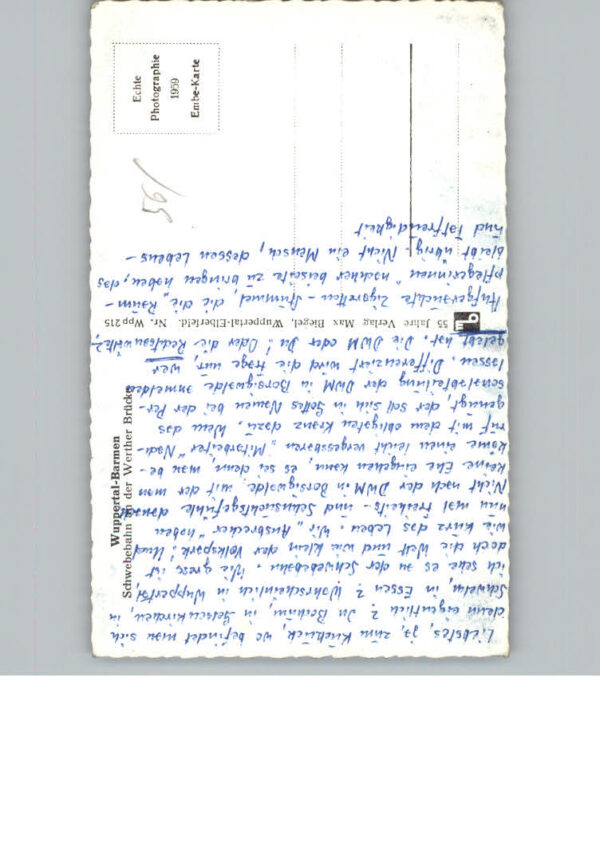 Liebstes, ja, zum Kuckuck, wo befindet man sich
denn eigentlich? In Bochum, in Gelsenkirchen, in
Schwelm, in Essen? Wahrscheinlich in Wuppertal,
ich sehe es an der Schwebebahn. Wie gross ist
doch die Welt und wie klein der Volkspark! Und
wie kurz das Leben. Wir "Ausbrecher" haben
nun mal Freiheits- und Sehnsuchtsgefühle
Nicht nach der DWM in Borsigwalde mit der man
keine Ehe eingehen kann, es sei denn, man be-
käme einen leicht vergessbaren "Mitarbeiter" Nach-
ruf mit dem obligaten Kranz dazu. Wem das
genügt, der soll sich in Gottes Namen bei der Per-
sonalabteilung der DWM in Borsigwalde anmelden
lassen. Differenziert wird die Frage nur, wer
gelebt hat. Die DWM oder Du! Oder die
Aufgerauchte Zigaretten-Stummel, die die "Raum-
pflegerinnen" nachher beiseite zu bringen haben, das
bleibt übrig. Nicht ein Mensch, dessen Lebens-
und Tatfreudigkeit
Wuppertal-Barmen
Schwebebahn an der Werther Brücke
55 Jahre Verlag Max Biegel, Wuppertal-Elberfeld. Nr. Wpp 215
Echte
Photographie
1959
Embe-Karte